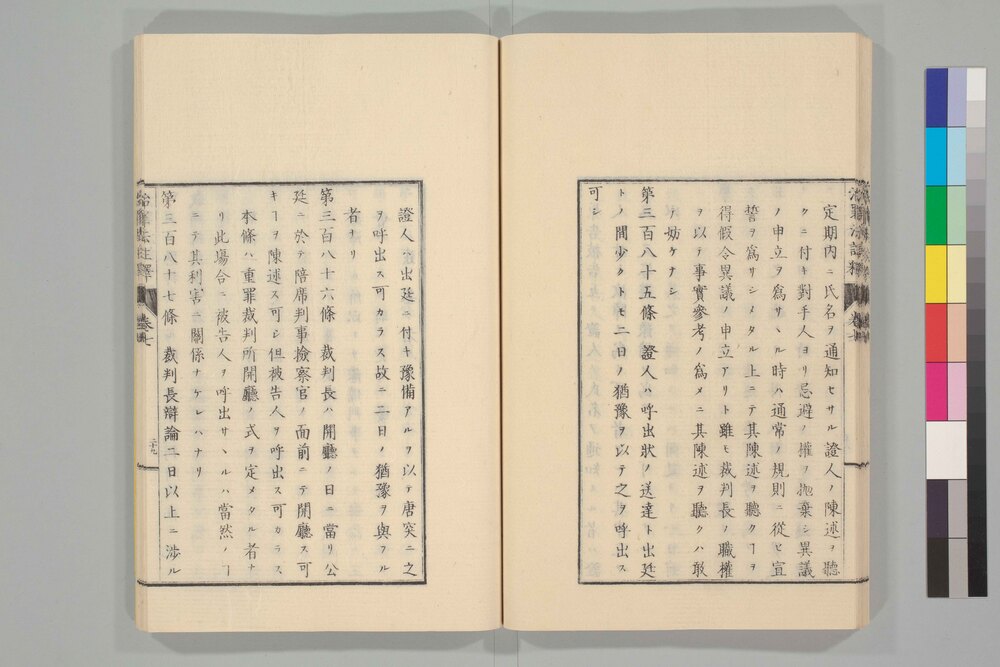 定期内ニ氏名ヲ通知セサル證人ノ陳述ヲ聽
クニ付キ對手人ヨリ忌避ノ權ヲ抛棄シ異議
ノ申立ヲ爲サヽル時ハ通常ノ規則ニ從ヒ宣
誓ヲ爲サシメタル上ニテ其陳述ヲ聽クヿヲ
得假令異議ノ申立アリト雖モ裁判長ノ職權
ヲ以テ事實參考ノ爲メニ其陳述ヲ聽クハ敢
テ妨ケナシ
第三百八十五條 證人ハ呼出狀ノ送達ト出廷
トノ間少クトモ二日ノ猶豫ヲ以テ之ヲ呼出ス
可シ
治罪法註釋 卷七
證人ハ出廷ニ付キ豫備アルヲ以テ唐突ニ之
ヲ呼出ス可カラス故ニ二日ノ猶豫ヲ與フル
者ナリ
第三百八十六條 裁判長ハ開廳ノ日ニ當リ公
廷ニ於テ陪席判事檢察官ノ面前ニテ開廳ス可
キヿヲ陳述ス可シ但被告人ヲ呼出ス可カラス
本條ハ重罪裁判所開廳ノ式ヲ定メタル者ナ
リ此場合ニ被告人ヲ呼出サヽルハ當然ノヿ
ニテ其利害ニ關係ナケレハナリ
第三百八十七條 裁判長辯論二日以上ニ涉ル
治罪法註釋 卷七